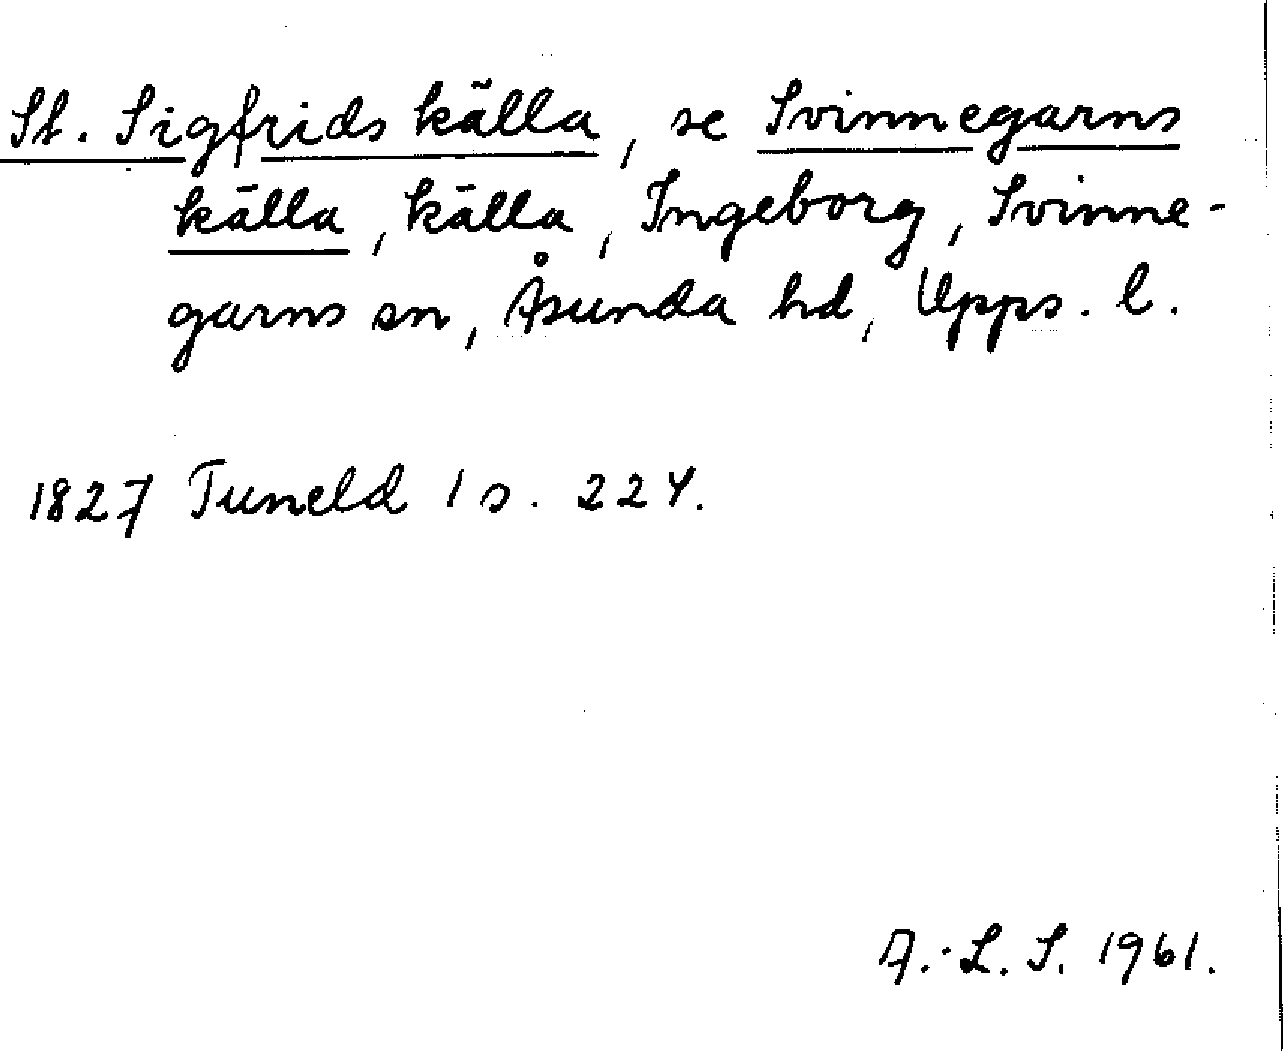 St. Sigfrids källa, se Svinnegarns
källa, källa, Ingeborg, Svinne-
garns sn, Åsunda hd, Upps. l.
1827 Tuneld 1 s. 224.
A.-L. S. 1961.